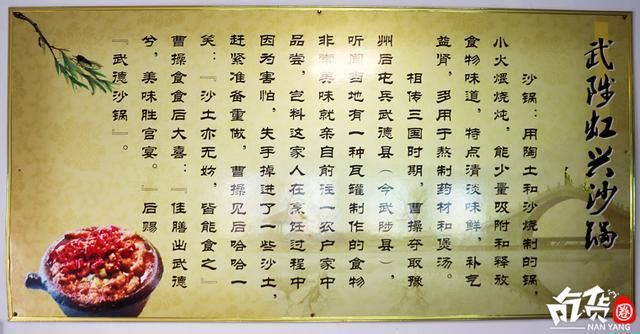 武陟虹兴沙锅
沙锅：用陶土和沙烧制的锅，
小火煨烧炖，能少量吸附和释放
食物味道，特点清淡味鲜，补气
益肾，多用于熬制药材和煲汤。
相传三国时期，曹操夺取豫
州后屯兵武德县（今武陟县），
听闻当地有一种瓦罐制作的食物
非常美味就亲自前往一农户家中
品尝，岂料这家人在烹饪过程中
因为害怕，失手掉进了一些沙土，
赶紧准备重做，曹操见后哈哈一
笑：『沙土亦无妨，皆能食之』
曹操食食后大喜：『佳膳出武德
兮，美味胜宫宴。』后赐
『武德沙锅』。
吃货圈
NAN YANG